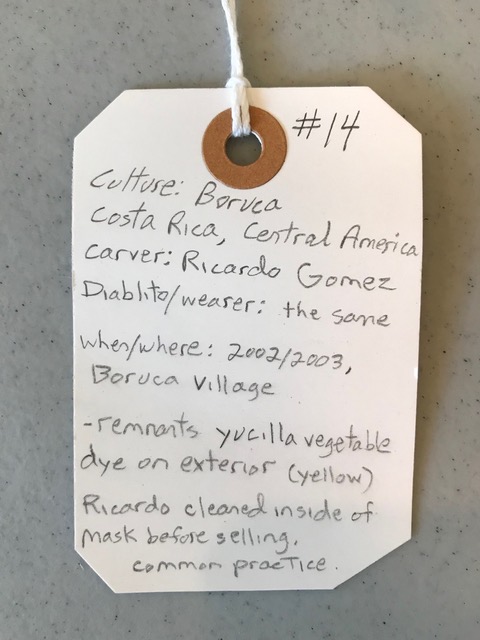 #14
Culture: Boruca
Costa Rica, Central America
Carver: Ricardo Gomez
Diablito/wearer: the same
when/where: 2002/2003,
Boruca Village
-remnants yucilla vegetable
dye on exterior (yellow)
Ricardo cleaned inside of
mask before selling.
common practice.